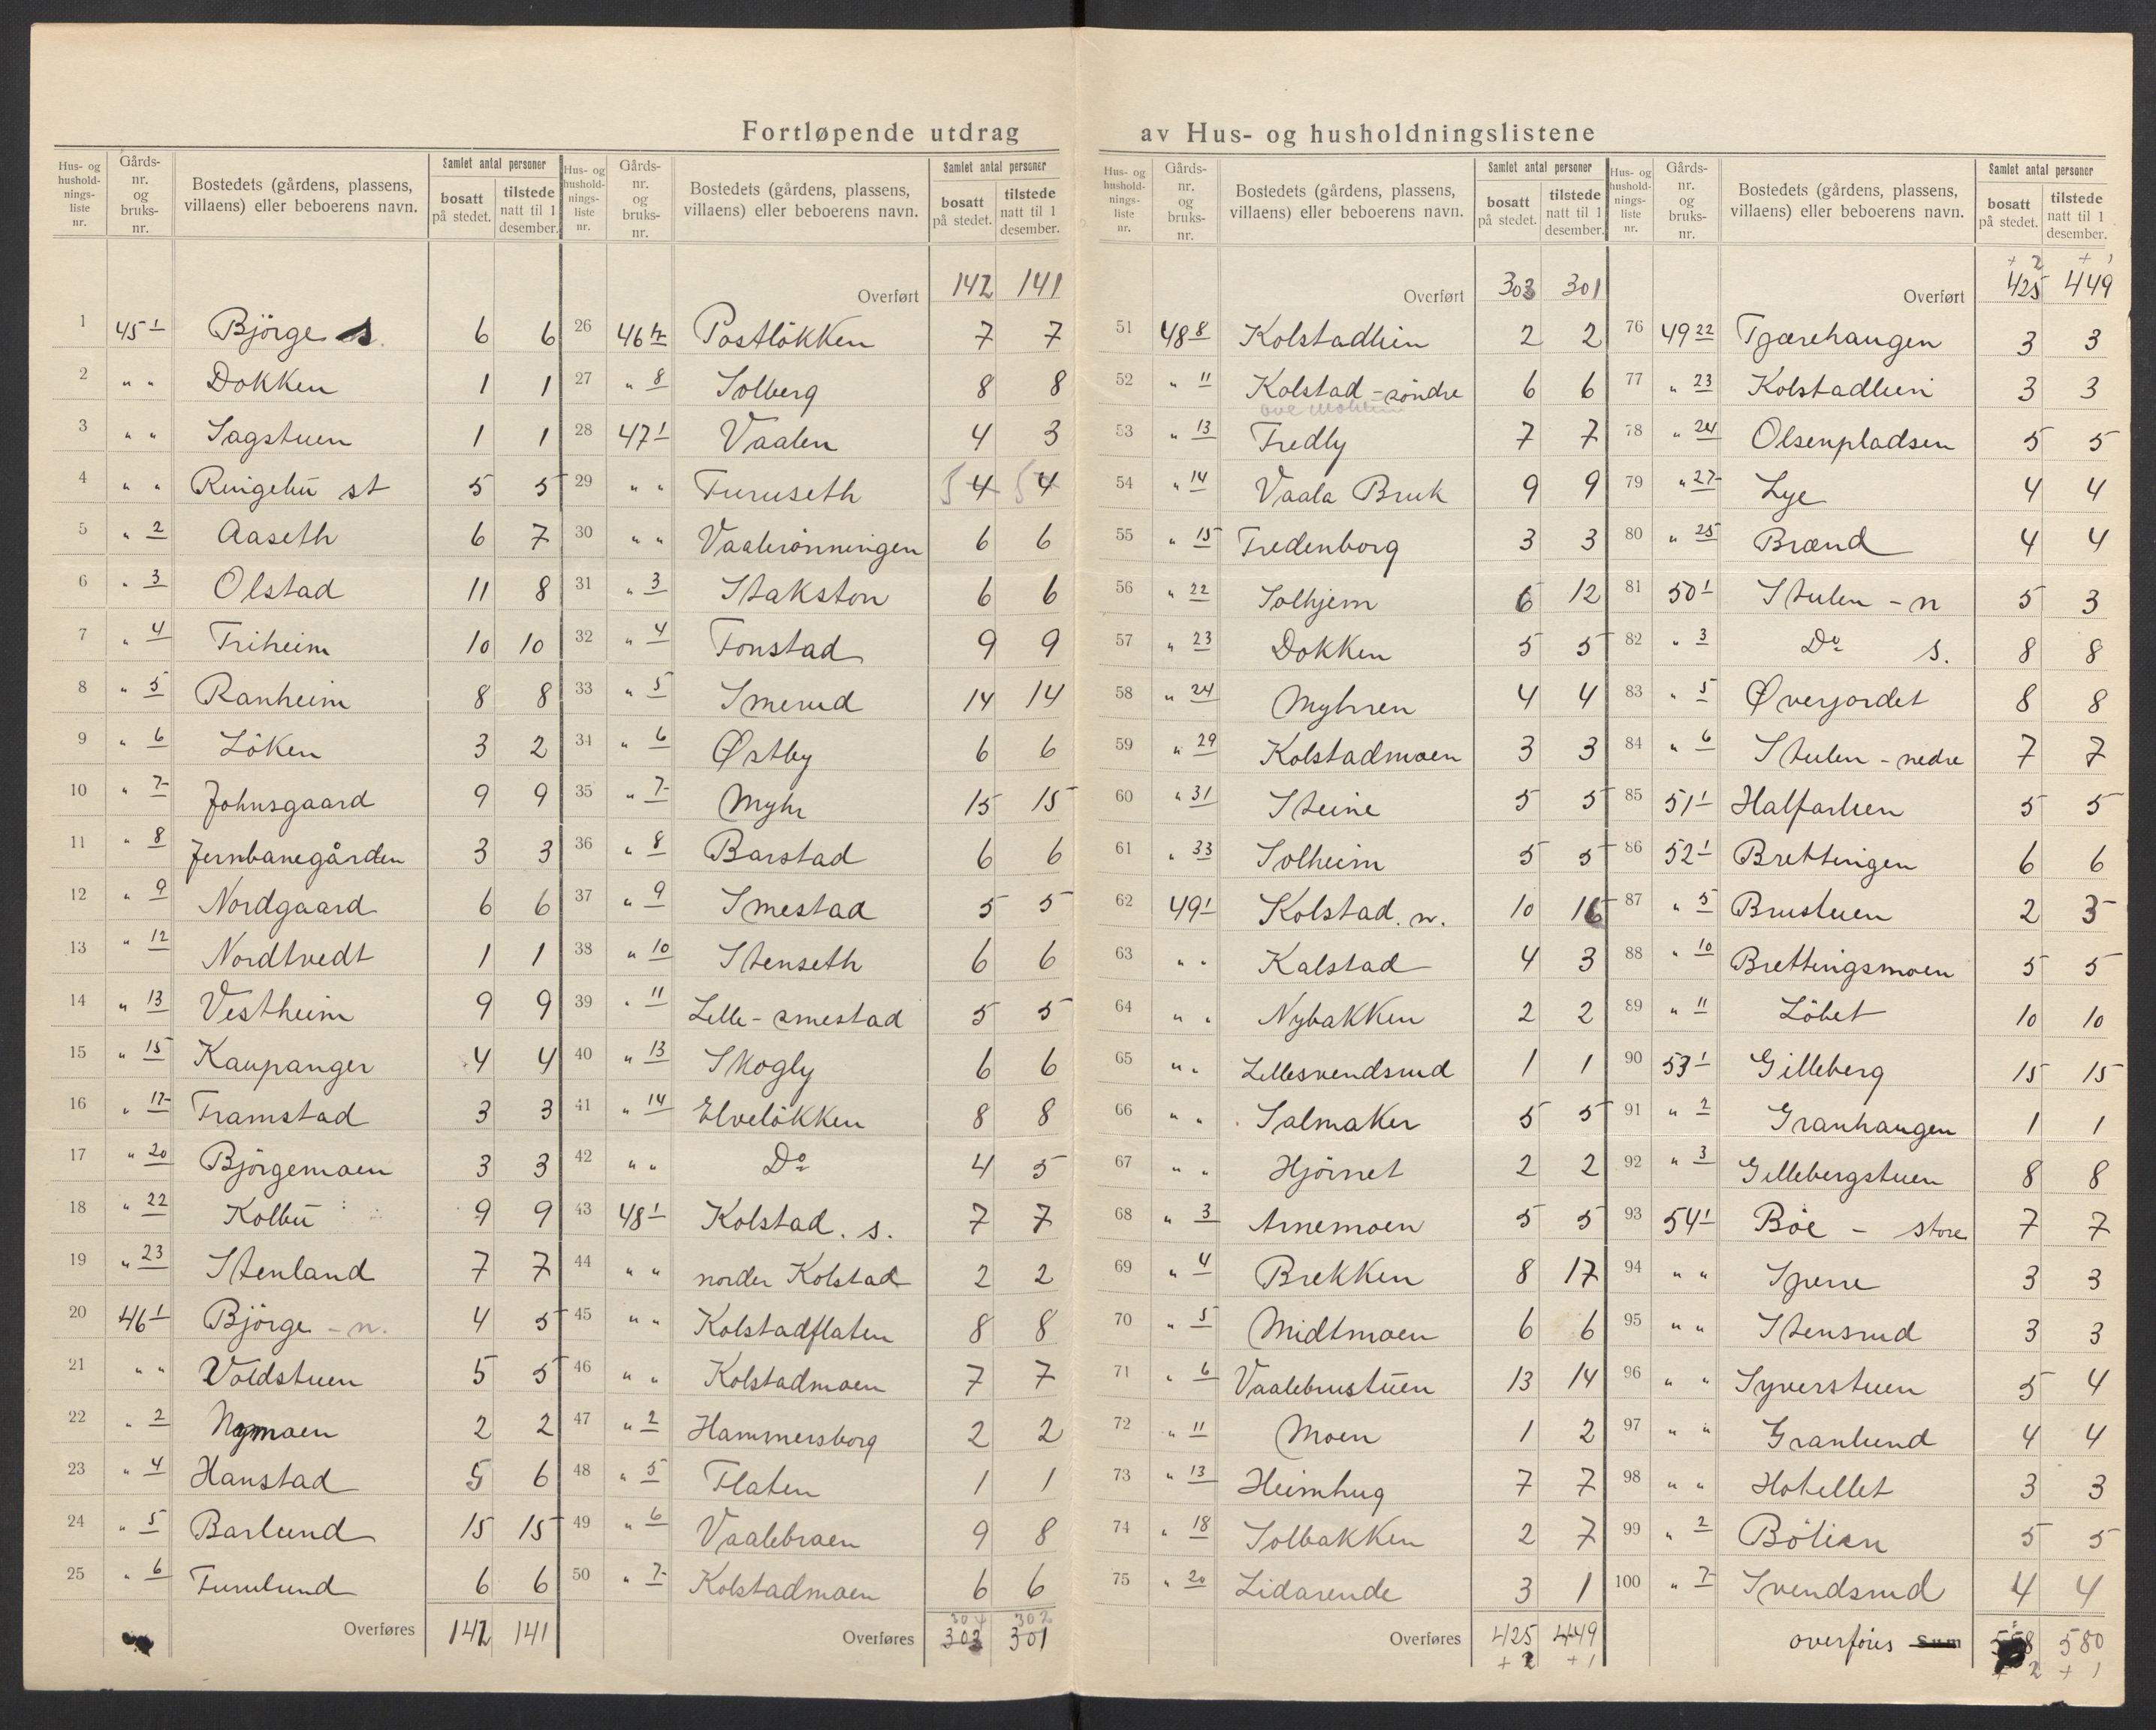 Fortløpende utdrag av Hus- og husholdningslistene
Hus- og husholdnings-liste nr. Gårds-nr. og bruks-nr. Bostedets (gårdens, plassens, villaens) eller beboerens navn. Samlet antal personer bosatt på stedet. tilstede natt til 1 desember.
1 45 1 Björge s. 6 6
2 " " Dokken 1 1
3 " " Sagstuen 1 1
4 " " Ringebu st 5 5
5 " 2 Aaseth 6 7
6 " 3 Olstad 11 8
7 " 4 Triheim 10 10
8 " 5 Ranheim 8 8
9 " 6 Löken 3 2
10 " 7 Johnsgaard 9 9
11 " 8 Jernbanegården 3 3
12 " 9 Nordgaard 6 6
13 " 12 Nordtvedt 1 1
14 " 13 Vestheim 9 9
15 " 15 Kaupanger 4 4
16 " 17 Framstad 3 3
17 " 20 Björgemoen 3 3
18 " 22 Kolbu 9 9
19 " 23 Stenland 7 7
20 46 1 Björge - n. 4 5
21 " " Voldstuen 5 5
22 " 2 Nymoen 2 2
23 " 4 Hanstad 5 6
24 " 5 Barlund 15 15
25 " 6 Furulund 6 6
Overføres 142 141
Hus- og husholdnings-liste nr. Gårds-nr. og bruks-nr. Bostedets (gårdens, plassens, villaens) eller beboerens navn. Samlet antal personer bosatt på stedet. tilstede natt til 1 desember.
Overført 142 141
26 46 7 Postlökken 7 7
27 " 8 Solberg 8 8
28 47 1 Vaalen 4 3
29 " " Furuseth 5 4 5 4
30 " " Vaalerönningen 6 6
31 " 3 Stakston 6 6
32 " 4 Fonstad 9 9
33 " 5 Smerud 14 14
34 " 6 Østby 6 6
35 " 7 Myhr 15 15
36 " 8 Barstad 6 6
37 " 9 Smestad 5 5
38 " 10 Stenseth 6 6
39 " 11 Lille-smestad 5 5
40 " 13 Skogly 6 6
41 " 14 Elvelökken 8 8
42 " " Do 4 5
43 48 1 Kolstad. s. 7 7
44 " " norder Kolstad 2 2
45 " " Kolstadflaten 8 8
46 " " Kolstadmoen 7 7
47 " 2 Hammersborg 2 2
48 " 5 Flaten 1 1
49 " 6 Vaalebroen 9 8
50 " 7 Kolstadmoen 6 6
304 302
Overføres 303 301
Hus- og husholdnings-liste nr. Gårds-nr. og bruks-nr. Bostedets (gårdens, plassens, villaens) eller beboerens navn. Samlet antal personer bosatt på stedet. tilstede natt til 1 desember.
Overført 303 301
51 48 8 Kolstadlien 2 2
52 " 11 Kolstad - söndre 6 6
53 " 13 Fredly 7 7
54 " 14 Vaala Bruk 9 9
55 " 15 Fredenborg 3 3
56 " 22 Solhjem 6 12
57 " 23 Dokken 5 5
58 " 24 Myhren 4 4
59 " 29 Kolstadmoen 3 3
60 " 31 Steine 5 5
61 " 33 Solheim 5 5
62 49 1 Kolstad. n. 10 16
63 " " Kalstad 4 3
64 " " Nybakken 2 2
65 " " Lillesvendsrud 1 1
66 " " Salmaker 5 5
67 " " Hjörnet 2 2
68 " 3 Arnemoen 5 5
69 " 4 Brekken 8 17
70 " 5 Midtmoen 6 6
71 " 6 Vaalebrustuen 13 14
72 " 11 Moen 1 2
73 " 13 Heimhug 7 7
74 " 18 Solbakken 2 7
75 " 20 Lidarende 3 1
Overføres 425 449
+ 2 + 1
Hus- og husholdnings-liste nr. Gårds-nr. og bruks-nr. Bostedets (gårdens, plassens, villaens) eller beboerens navn. Samlet antal personer bosatt på stedet. tilstede natt til 1 desember.
+ 2 + 1
Overført 425 449
76 49 22 Tjærehaugen 3 3
77 " 23 Kolstadlien 3 3
78 " 24 Olsenpladsen 5 5
79 " 27 Lye 4 4
80 " 25 Brænd 4 4
81 50 1 Stulen - n 5 3
82 " 3 Do s. 8 8
83 " 5 Øverjordet 8 8
84 " 6 Stulen - nedre 7 7
85 51 1 Halfarlien 5 5
86 52 1 Brettingen 6 6
87 " 5 Brustuen 2 3
88 " 10 Brettingsmoen 5 5
89 " 11 Löbet 10 10
90 53 1 Gilleberg 15 15
91 " 2 Granhaugen 1 1
92 " 3 Gillebergstuen 8 8
93 54 1 Böe - store 7 7
94 " " Sperre 3 3
95 " " Stensrud 3 3
96 " " Syverstuen 5 4
97 " " Granlund 4 4
98 " " Hotellet 3 3
99 " 2 Bölien 5 5
100 " 7 Svendsrud 4 4
overføres Sum 558 580
+ 2 + 1